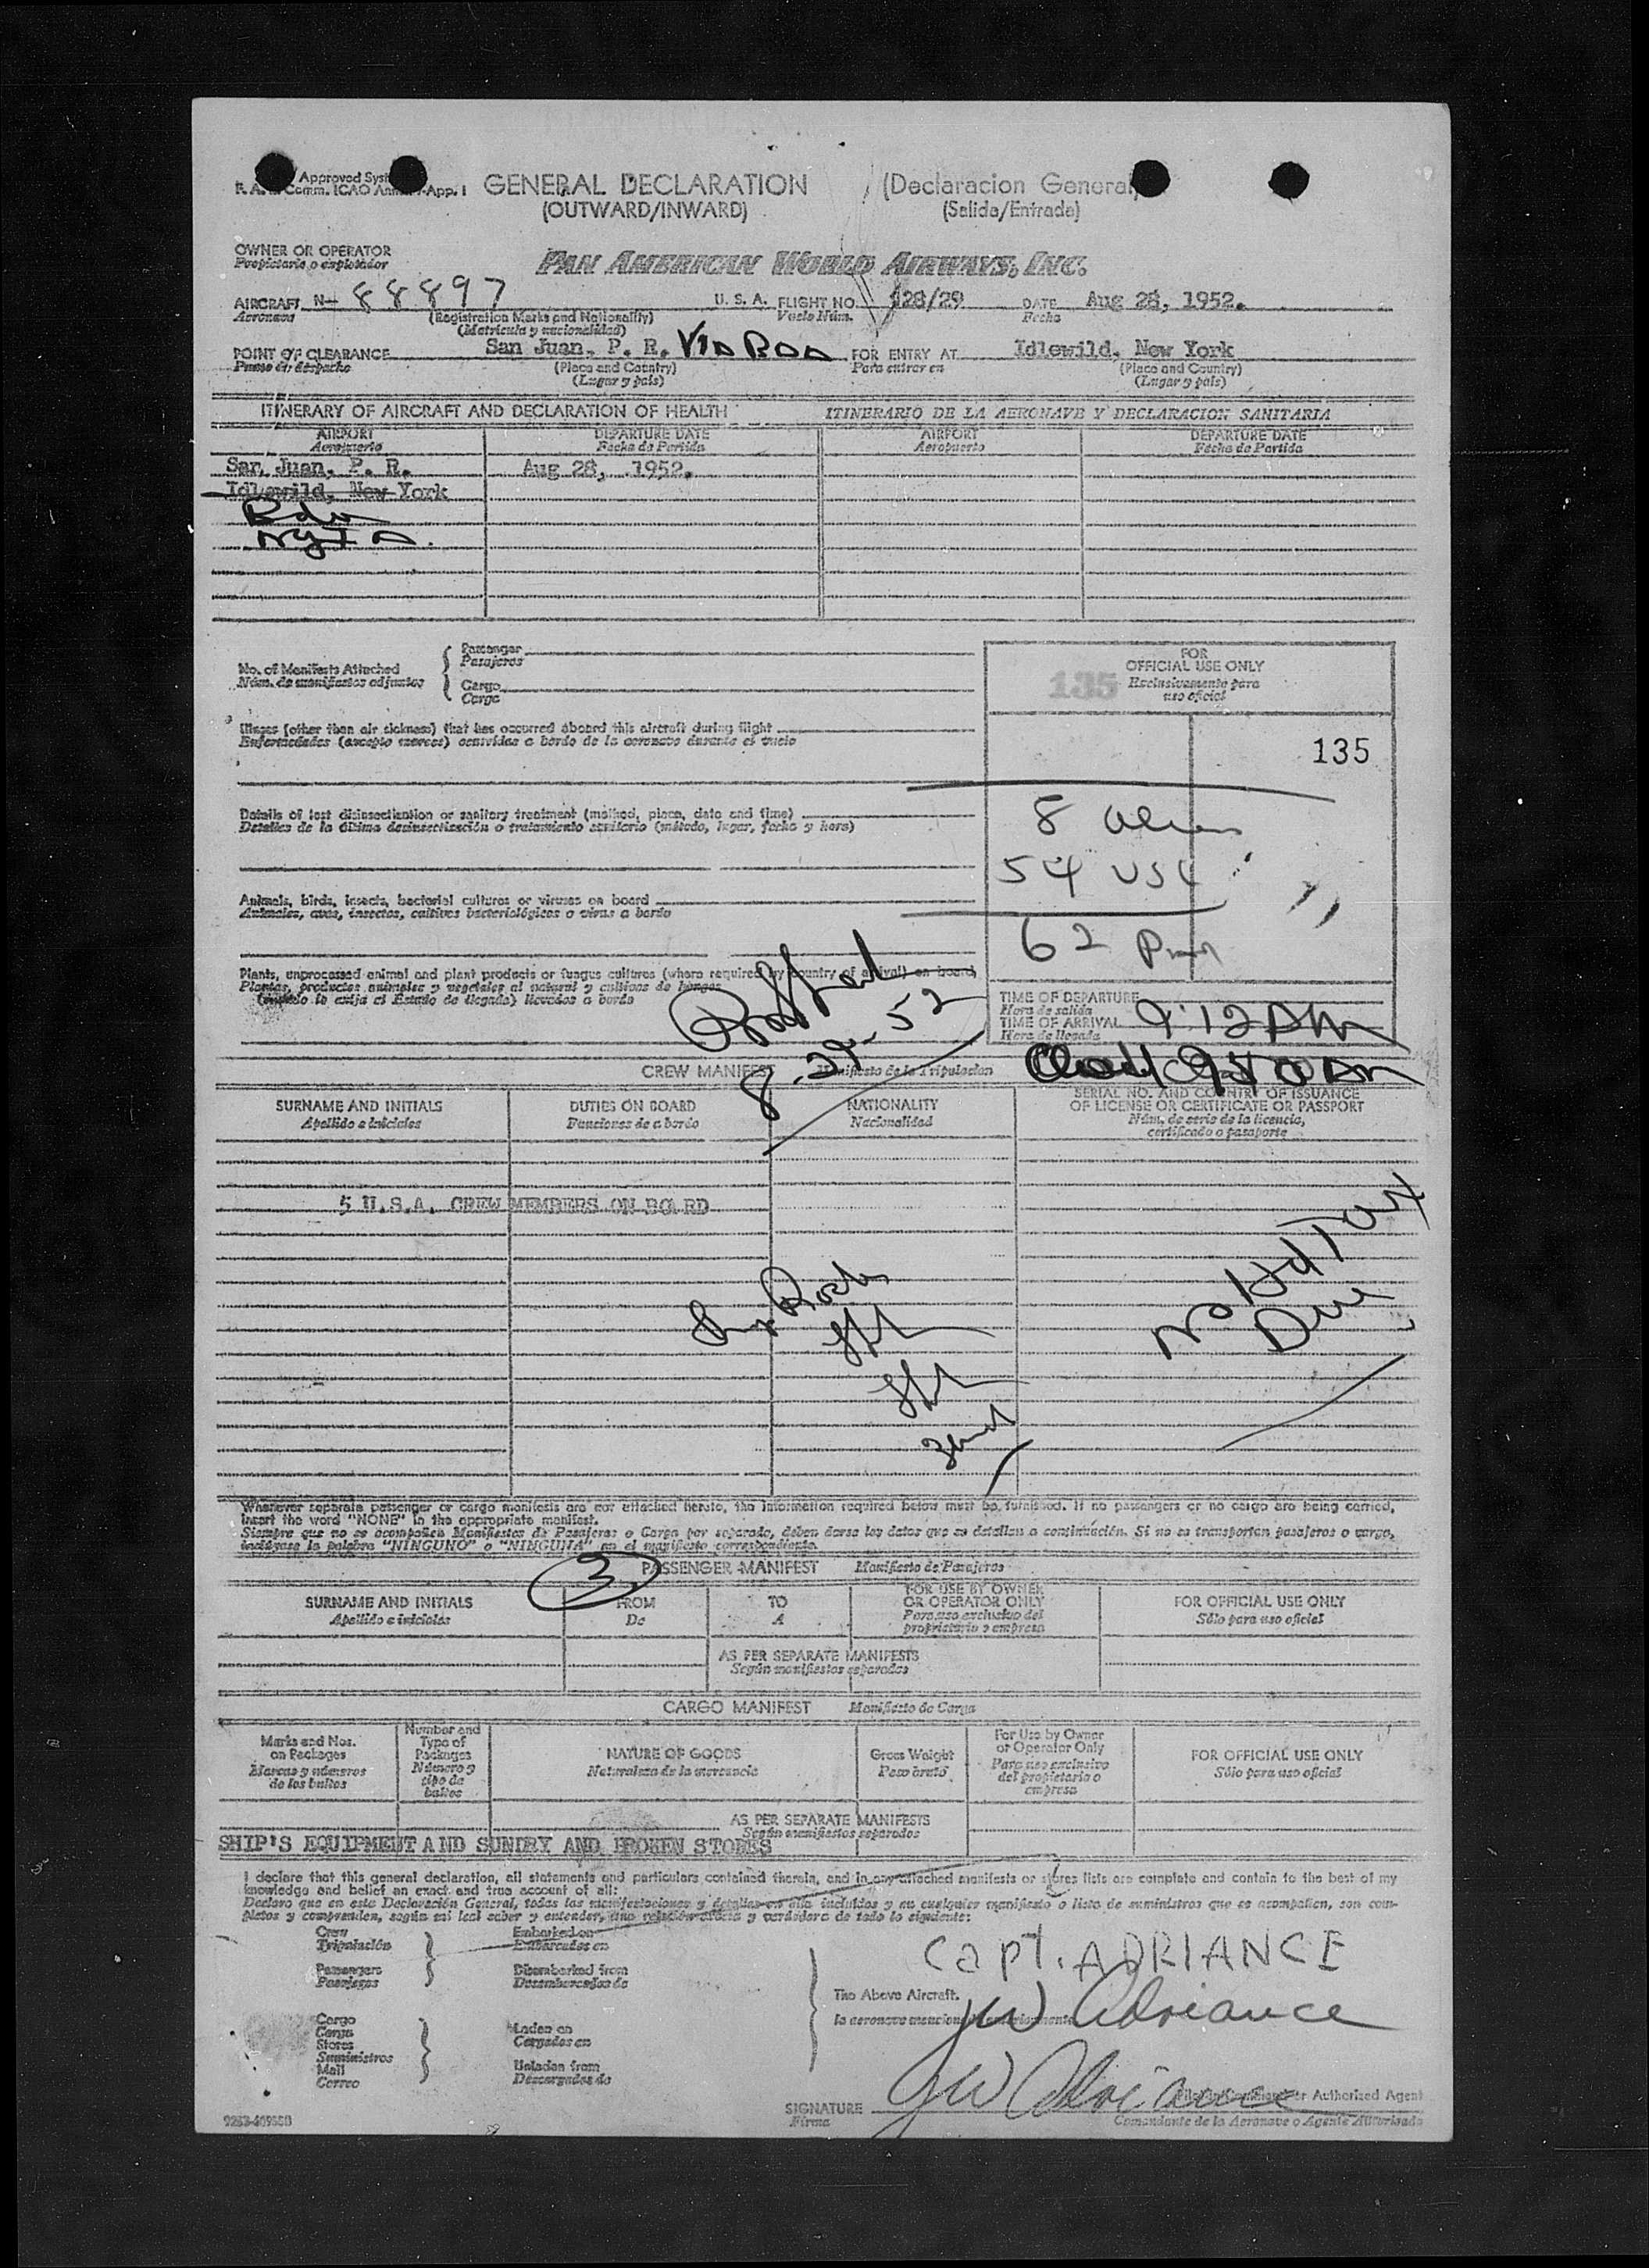 Approved Syst
Comm. ICAO Ann App. I
GENERAL DECLARATION (Declaracion General)
(OUTWARD/INWARD) (Salida/Entrada)
OWNER OR OPERATOR
Propietario o explotador
PAN AMERICAN WORLD AIRWAYS, INC.
AIRCRAFT N- 88897 U. S. A. FLIGHT NO. 128/29 DATE Aug 28, 1952.
Aeronave (Registration Marks and Nationality) Vuelo Núm. Fecha
(Matricula y nacionalidad)
POINT OF CLEARANCE San Juan, P. R. VIA BDA FOR ENTRY AT Idlewild, New York
Punto de despacho (Place and Country) Para entrar en (Place and Country)
(Lugar y país) (Lugar y país)
ITINERARY OF AIRCRAFT AND DECLARATION OF HEALTH ITINERARIO DE LA AERONAVE Y DECLARACION SANITARIA
AIRPORT DEPARTURE DATE AIRPORT DEPARTURE DATE
Aeropuerto Fecha de Partida Aeropuerto Fecha de Partida
San Juan, P. R. Aug 28, 1952.
Idlewild, New York
Bda
NYIA.
No. of Manifests Attached
Núm. de manifiestos adjuntos
Passenger
Pasajeros
Cargo
Carga
FOR
OFFICIAL USE ONLY
135 Exclusivamente para
uso oficial
135
Illness (other than air sickness) that has occurred aboard this aircraft during flight
Enfermedades (excepto mareos) ocurridas a bordo de la aeronave durante el vuelo
Details of last disinsectization or sanitary treatment (method, place, date and time)
Detalles de la última desinsectización o tratamiento sanitario (método, lugar, fecha y hora)
8 aliens
54 USC
62 Pass
Animals, birds, insects, bacterial cultures or viruses on board
Animales, aves, insectos, cultivos bacteriológicos o virus a bordo
Plants, unprocessed animal and plant products or fungus cultures (where required by country of arrival) on board
Plantas, productos animales y vegetales al natural y cultivos de hongos
(cuando lo exija el Estado de llegada) llevados a bordo
8-29-52
TIME OF DEPARTURE
Hora de salida
TIME OF ARRIVAL 9:12 PM
Hora de llegada
CREW MANIFEST Manifiesto de la Tripulacion
SURNAME AND INITIALS DUTIES ON BOARD NATIONALITY SERIAL NO. AND COUNTRY OF ISSUANCE
OF LICENSE OR CERTIFICATE OR PASSPORT
Apellido e iniciales Funciones de a bordo Nacionalidad Núm. de serie de la licencia,
certificado o pasaporte
5 U.S.A. CREW MEMBERS ON BOARD
No Hd Tax
Due
Whenever separate passenger or cargo manifests are not attached hereto, the information required below must be furnished. If no passengers or no cargo are being carried,
insert the word "NONE" in the appropriate manifest.
Siempre que no se acompañen Manifiestos de Pasajeros o Carga por separado, deben darse los datos que se detallan a continuación. Si no se transportan pasajeros o carga,
inclúyase la palabra "NINGUNO" o "NINGUNA" en el manifiesto correspondiente.
3
PASSENGER MANIFEST Manifiesto de Pasajeros
SURNAME AND INITIALS FROM TO FOR USE BY OWNER
OR OPERATOR ONLY FOR OFFICIAL USE ONLY
Apellido e iniciales De A Para uso exclusivo del
propietario o empresa Sólo para uso oficial
AS PER SEPARATE MANIFESTS
Según manifiestos separados
CARGO MANIFEST Manifiesto de Carga
Marks and Nos.
on Packages
Marcas y números
de los bultos
Number and
Type of
Packages
Número y
tipo de
bultos
NATURE OF GOODS
Naturaleza de la mercancia
Gross Weight
Peso bruto
For Use by Owner
or Operator Only
Para uso exclusivo
del propietario o
empresa
FOR OFFICIAL USE ONLY
Sólo para uso oficial
AS PER SEPARATE MANIFESTS
Según manifiestos separados
SHIP'S EQUIPMENT AND SUNDRY AND BROKEN STORES
I declare that this general declaration, all statements and particulars contained therein, and in any attached manifests or stores lists are complete and contain to the best of my
knowledge and belief an exact and true account of all:
Declaro que en esta Declaración General, todas las manifestaciones y detalles en ella incluidos y en cualquier manifiesto o lista de suministros que se acompañen, son com-
pletos y comprenden, según mi leal saber y entender, una relación exacta y verdadera de todo lo siguiente:
Crew
Tripulación
Passengers
Pasajeros
Embarked on
Embarcados en
Disembarked from
Desembarcados de
Capt. ADRIANCE
The Above Aircraft.
JW Adriance
Cargo
Carga
Stores
Suministros
Mail
Correo
Laden on
Cargados en
Unladen from
Descargados de
JW Adriance
Authorized Agent
SIGNATURE
Firma
Comandante de la Aeronave o Agente Autorizado